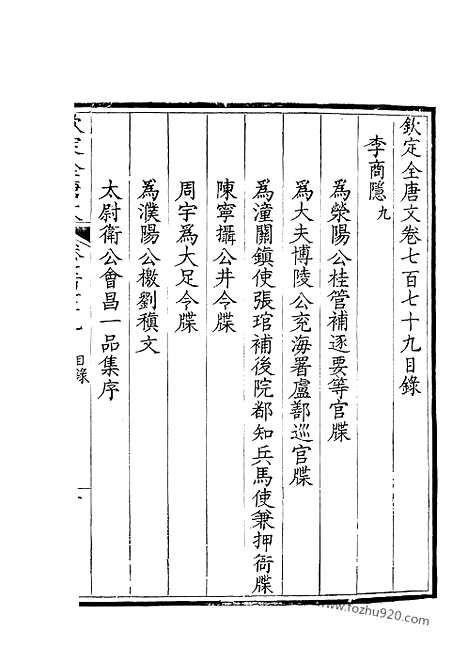 欽定全唐文卷七百七十九目錄
李商隱九
為滎陽公桂管補逐要等官牒
為大夫博陵公兗海署盧鄯巡官牒
為潼關鎮使張琯補後院都知兵馬使兼押衙牒
陳寧攝公井令牒
周宇為大足令牒
為濮陽公檄劉稹文
太尉衛公會昌一品集序
目錄
www.fozhu920.com